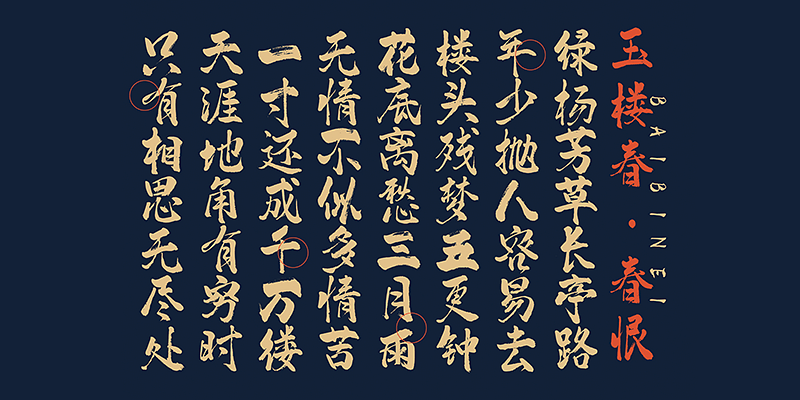 玉楼春·春恨
BAIBINEI
绿杨芳草长亭路
年少抛人容易去
楼头残梦五更钟
花底离愁三月雨
无情不似多情苦
一寸还成千万缕
天涯地角有穷时
只有相思无尽处